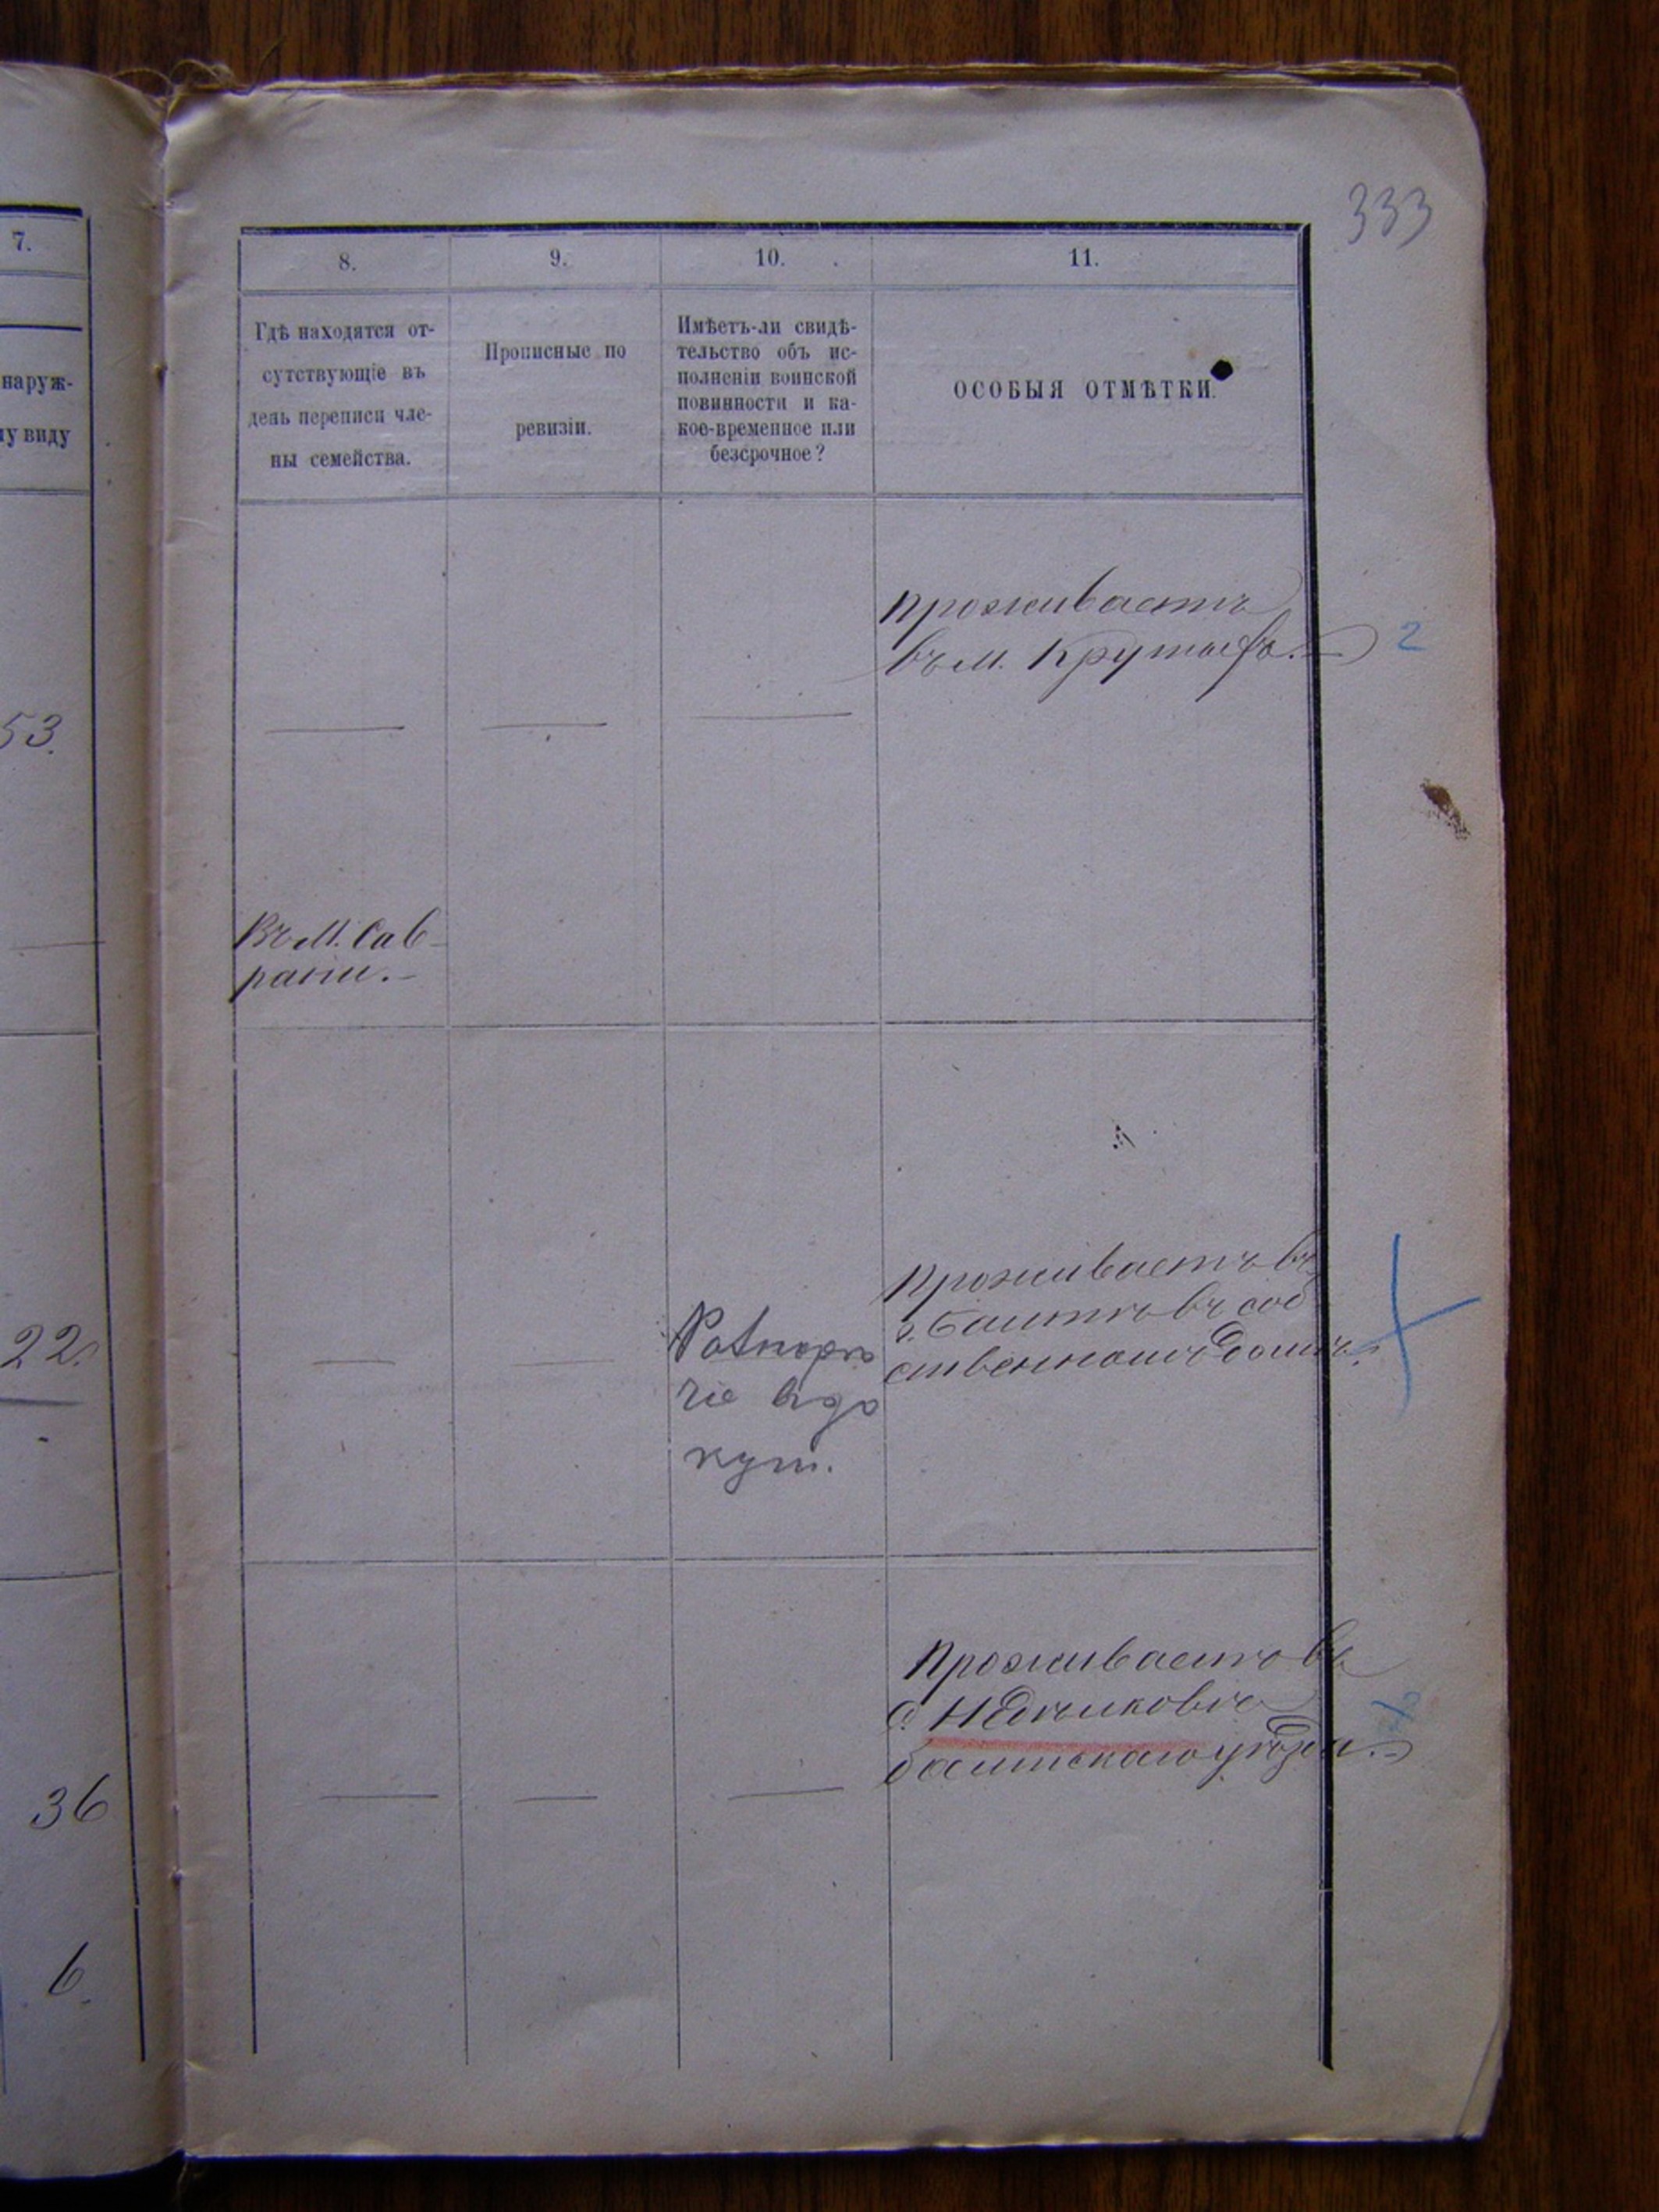 333
7.
наруж-
му виду
53.
22.
36
6.
8.
9.
10.
11.
Гдѣ находятся от-
сутствующіе въ
день переписи чле-
ны семейства.
Прописные по
ревизіи.
Имѣетъ-ли свидѣ-
тельство объ ис-
полненіи воинской
повинности и ка-
кое-временное или
безсрочное?
ОСОБЫЯ ОТМѢТКИ.
проживаетъ
въ м. Крутыхъ.
2
Въ м. Сав-
рани.
Проживаетъ въ
г. Балтѣ въ соб
ственномъ домѣ.
Проживаетъ въ
с.
балтскаго уѣзда.